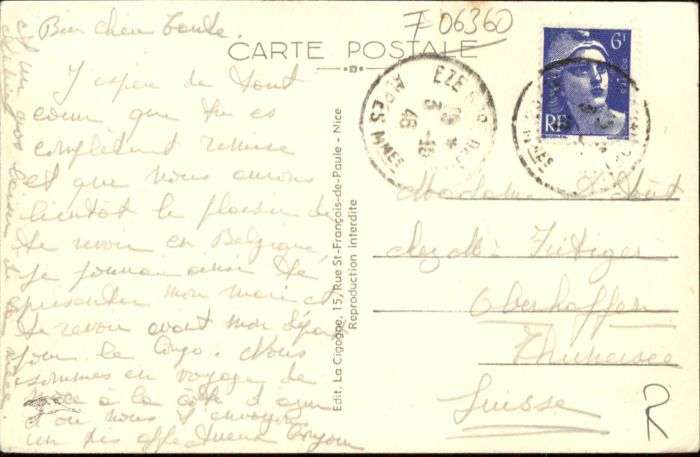 Bien chère Tante.
J'espère de tout
coeur que tu es
complètement remise
et que nous aurons
bientôt le plaisir de
te revoir en Belgique,
je pourrai ainsi te
présenter mon mari et
te revoir avant mon départ
pour le Congo. Nous
sommes en voyage de
noce à la côte d'azur
d'où nous t'envoyons
un des affectueux bonjour
CARTE POSTALE
F 06360
6F
POSTES
RF
EZE
ALPES MMES
48
Edit. La Cigogne, 15, Rue St-François-de-Paule - Nice
Reproduction interdite
Madame
chez Mr
Oberhoffen
Thunersee
Suisse
R